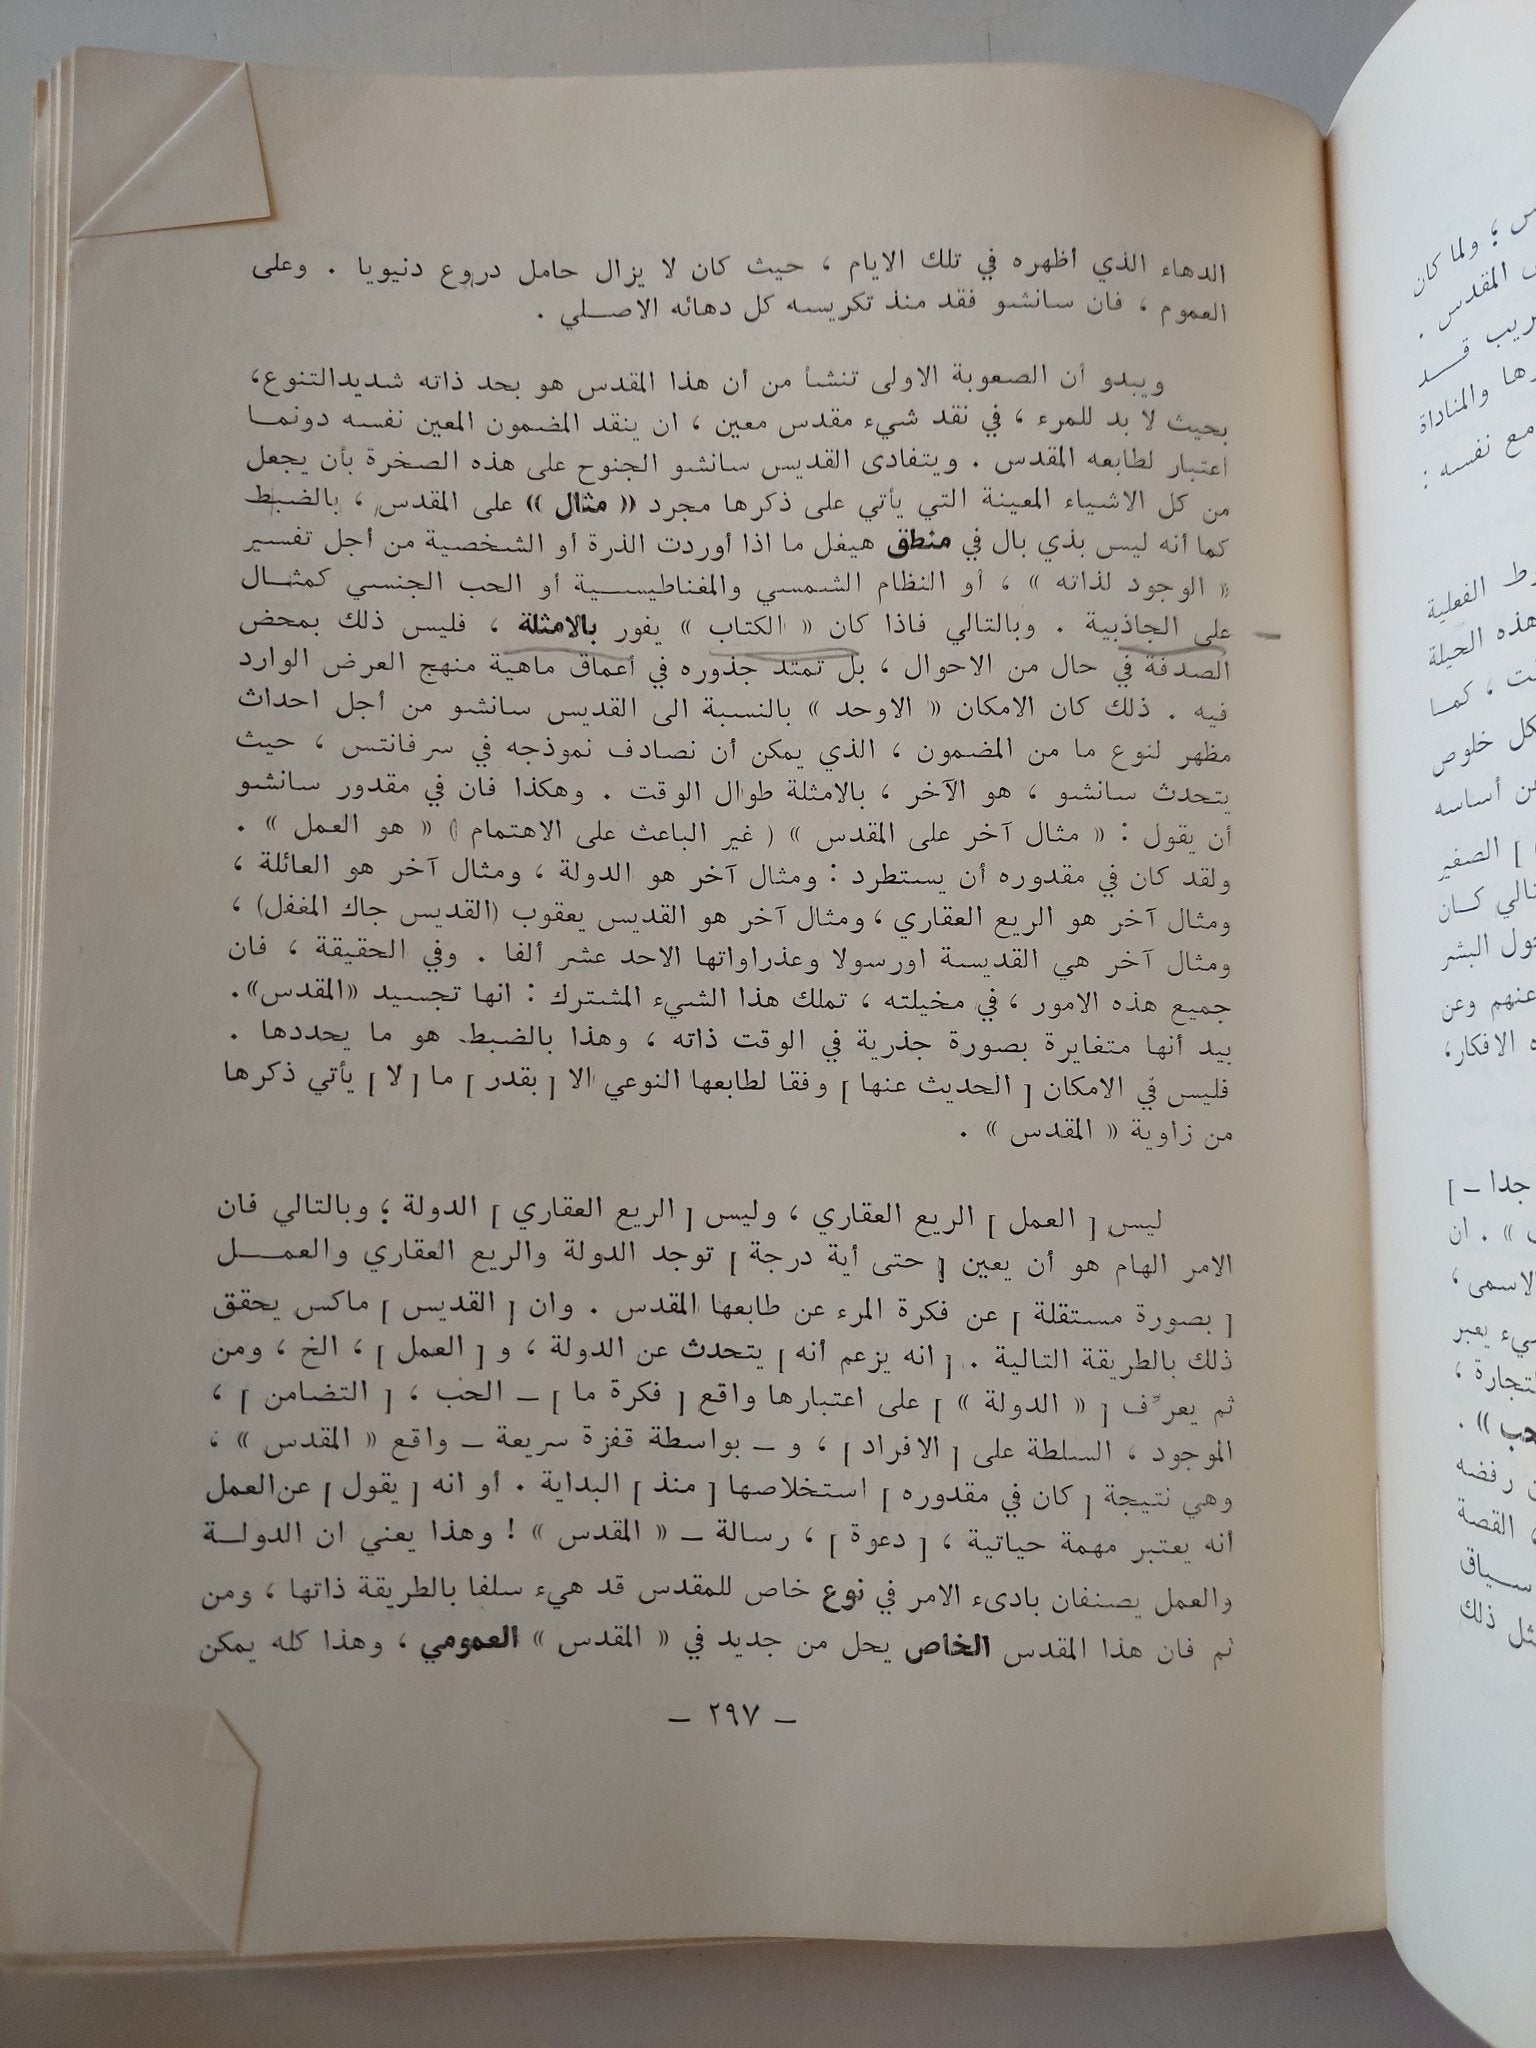 الدهاء الذي أظهره في تلك الايام ، حيث كان لا يزال حامل دروع دنيويا . وعلى
العموم ، فان سانشو فقد منذ تكريسه كل دهائه الاصلي .
ويبدو أن الصعوبة الاولى تنشأ من أن هذا المقدس هو بحد ذاته شديد التنوع،
بحيث لا بد للمرء ، في نقد شيء مقدس معين ، ان ينقد المضمون المعين نفسه دونما
اعتبار لطابعه المقدس . ويتفادى القديس سانشو الجنوح على هذه الصخرة بأن يجعل
من كل الاشياء المعينة التي يأتي على ذكرها مجرد « مثال » على المقدس ، بالضبط
كما أنه ليس بذي بال في منطق هيغل ما اذا أوردت الذرة أو الشخصية من أجل تفسير
« الوجود لذاته » ، أو النظام الشمسي والمغناطيسية أو الحب الجنسي كمثال
على الجاذبية . وبالتالي فاذا كان « الكتاب » يفور بالامثلة ، فليس ذلك بمحض
الصدفة في حال من الاحوال ، بل تمتد جذوره في أعماق ماهية منهج العرض الوارد
فيه . ذلك كان الامكان « الاوحد » بالنسبة الى القديس سانشو من أجل احداث
مظهر لنوع ما من المضمون ، الذي يمكن أن نصادف نموذجه في سرفانتس ، حيث
يتحدث سانشو ، هو الآخر ، بالامثلة طوال الوقت . وهكذا فان في مقدور سانشو
أن يقول : « مثال آخر على المقدس » ( غير الباعث على الاهتمام ) « هو العمل » .
ولقد كان في مقدوره أن يستطرد : ومثال آخر هو الدولة ، ومثال آخر هو العائلة ،
ومثال آخر هو الريع العقاري ، ومثال آخر هو القديس يعقوب (القديس جاك المغفل) ،
ومثال آخر هي القديسة اورسولا وعذراواتها الاحد عشر ألفا . وفي الحقيقة ، فان
جميع هذه الامور ، في مخيلته ، تملك هذا الشيء المشترك : انها تجسيد «المقدس».
بيد أنها متغايرة بصورة جذرية في الوقت ذاته ، وهذا بالضبط هو ما يحددها .
فليس في الامكان [ الحديث عنها ] وفقا لطابعها النوعي الا [ بقدر ] ما [ لا ] يأتي ذكرها
من زاوية « المقدس » .
ليس [ العمل ] الريع العقاري ، وليس [ الريع العقاري ] الدولة ؛ وبالتالي فان
الامر الهام هو أن يعين [ حتى أية درجة ] توجد الدولة والريع العقاري والعمل
[ بصورة مستقلة ] عن فكرة المرء عن طابعها المقدس . وان [ القديس ] ماكس يحقق
ذلك بالطريقة التالية . [ انه يزعم أنه ] يتحدث عن الدولة ، و [ العمل ] ، الخ ، ومن
ثم يعرّف [ « الدولة » ] على اعتبارها واقع [ فكرة ما ] – الحب ، [ التضامن ] ،
الموجود ، السلطة على [ الافراد ] ، و – بواسطة قفزة سريعة – واقع « المقدس » ،
وهي نتيجة [ كان في مقدوره ] استخلاصها [ منذ ] البداية . أو انه [ يقول ] عن العمل
أنه يعتبر مهمة حياتية ، [ دعوة ] ، رسالة – « المقدس » ! وهذا يعني ان الدولة
والعمل يصنفان بادىء الامر في نوع خاص للمقدس قد هيء سلفا بالطريقة ذاتها ، ومن
ثم فان هذا المقدس الخاص يحل من جديد في « المقدس » العمومي ، وهذا كله يمكن
– ٢٩٧ –